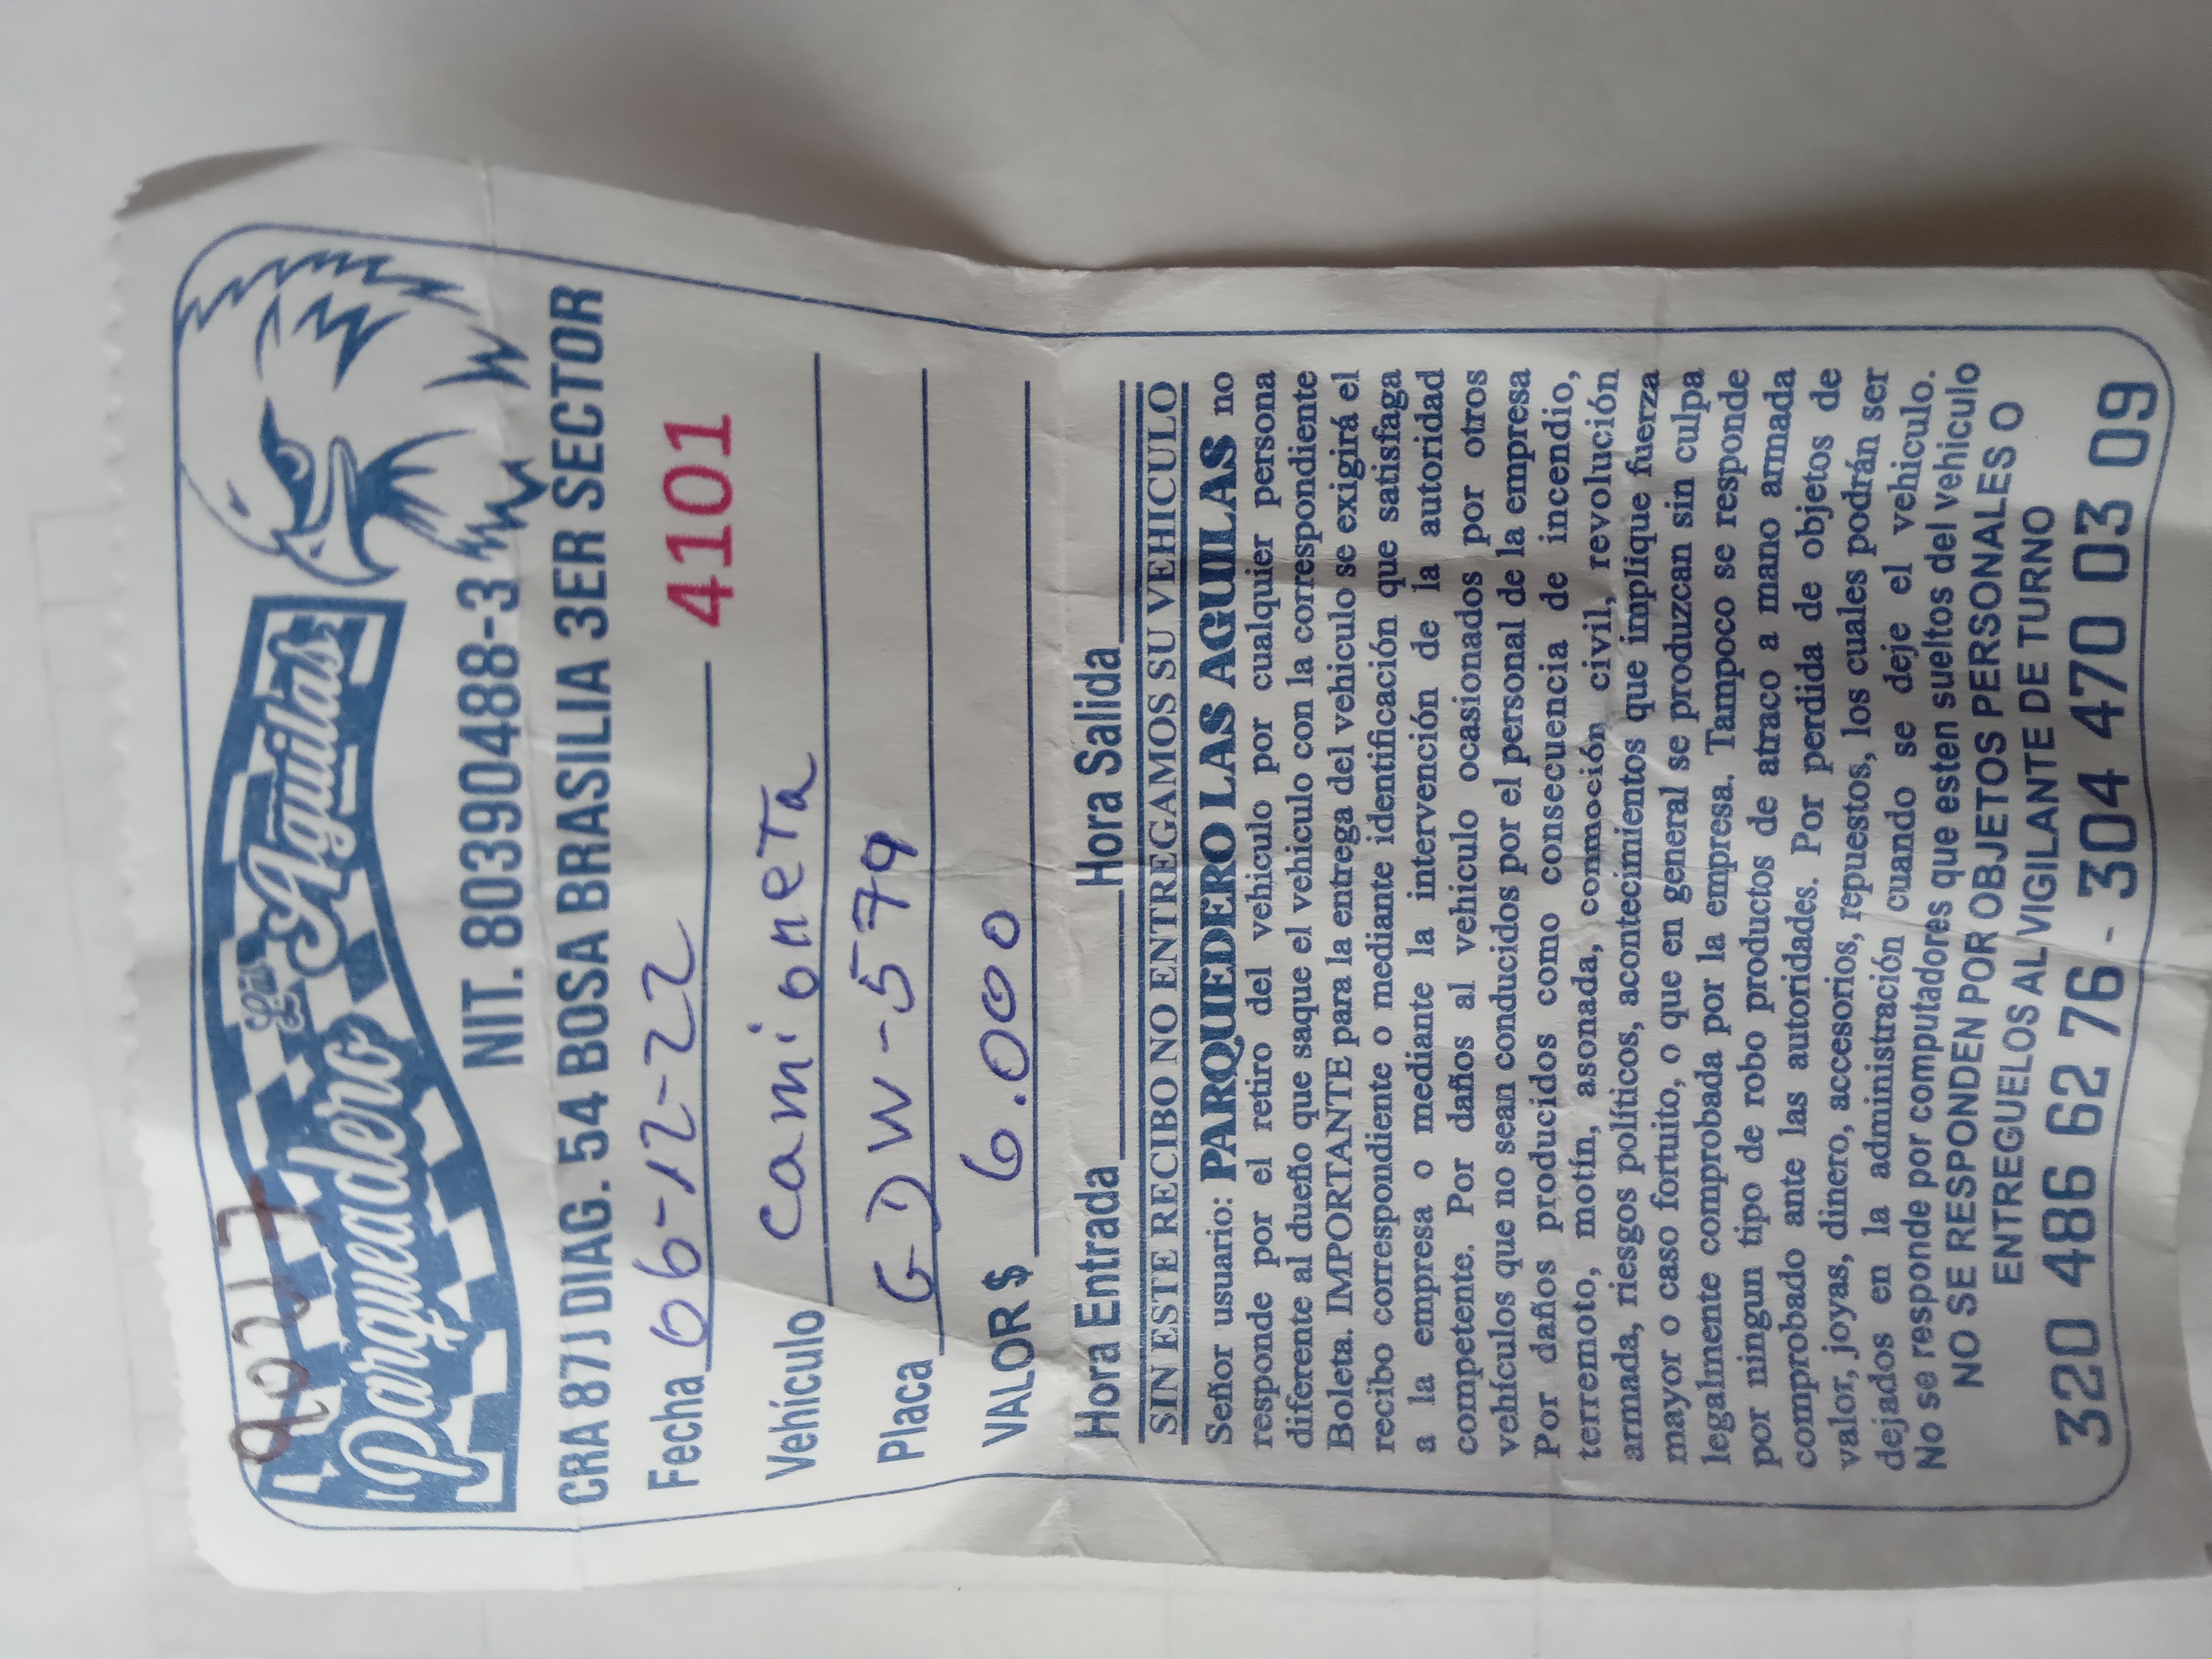 90217
Parqueadero Las Aguilas
NIT. 80390488-3
CRA 87J DIAG. 54 BOSA BRASILIA 3ER SECTOR
Fecha 06-12-22 4101
Vehículo Camioneta
Placa GDW-579
VALOR $ 6.000
Hora Entrada Hora Salida
SIN ESTE RECIBO NO ENTREGAMOS SU VEHICULO
Señor usuario: PARQUEDERO LAS AGUILAS no
responde por el retiro del vehiculo por cualquier persona
diferente al dueño que saque el vehiculo con la correspondiente
Boleta. IMPORTANTE para la entrega del vehiculo se exigirá el
recibo correspondiente o mediante identificación que satisfaga
a la empresa o mediante la intervención de la autoridad
competente. Por daños al vehiculo ocasionados por otros
vehículos que no sean conducidos por el personal de la empresa
Por daños producidos como consecuencia de incendio,
terremoto, motín, asonada, conmoción civil, revolución
armada, riesgos políticos, acontecimientos que implique fuerza
mayor o caso fortuito, o que en general se produzcan sin culpa
legalmente comprobada por la empresa. Tampoco se responde
por ningun tipo de robo productos de atraco a mano armada
comprobado ante las autoridades. Por perdida de objetos de
valor, joyas, dinero, accesorios, repuestos, los cuales podrán ser
dejados en la administración cuando se deje el vehiculo.
No se responde por computadores que esten sueltos del vehiculo
NO SE RESPONDEN POR OBJETOS PERSONALES O
ENTREGUELOS AL VIGILANTE DE TURNO
320 486 62 76 - 304 470 03 09